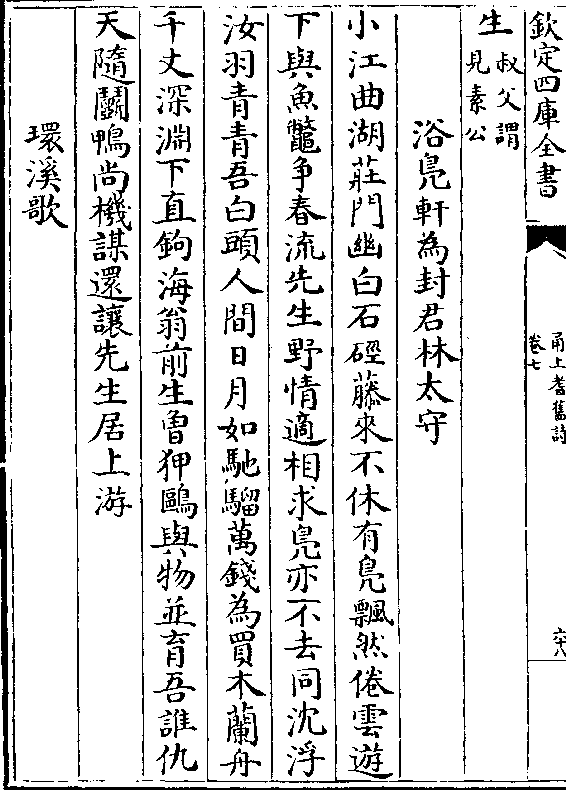 欽定四庫全書
甬上耆舊詩
卷七
六十八
生叔父謂
見素公
浴鳧軒為封君林太守
小江曲湖莊門幽白石磴藤來不休有鳧飄然倦雲遊
下與魚鼈争春流先生野情適相求鳧亦不去同沈浮
汝羽青青吾白頭人間日月如馳騮萬錢為買木蘭舟
千丈深淵下直鉤海翁前生曾狎鷗與物並育吾誰仇
天隨鬭鴨尚機謀還讓先生居上游
環溪歌